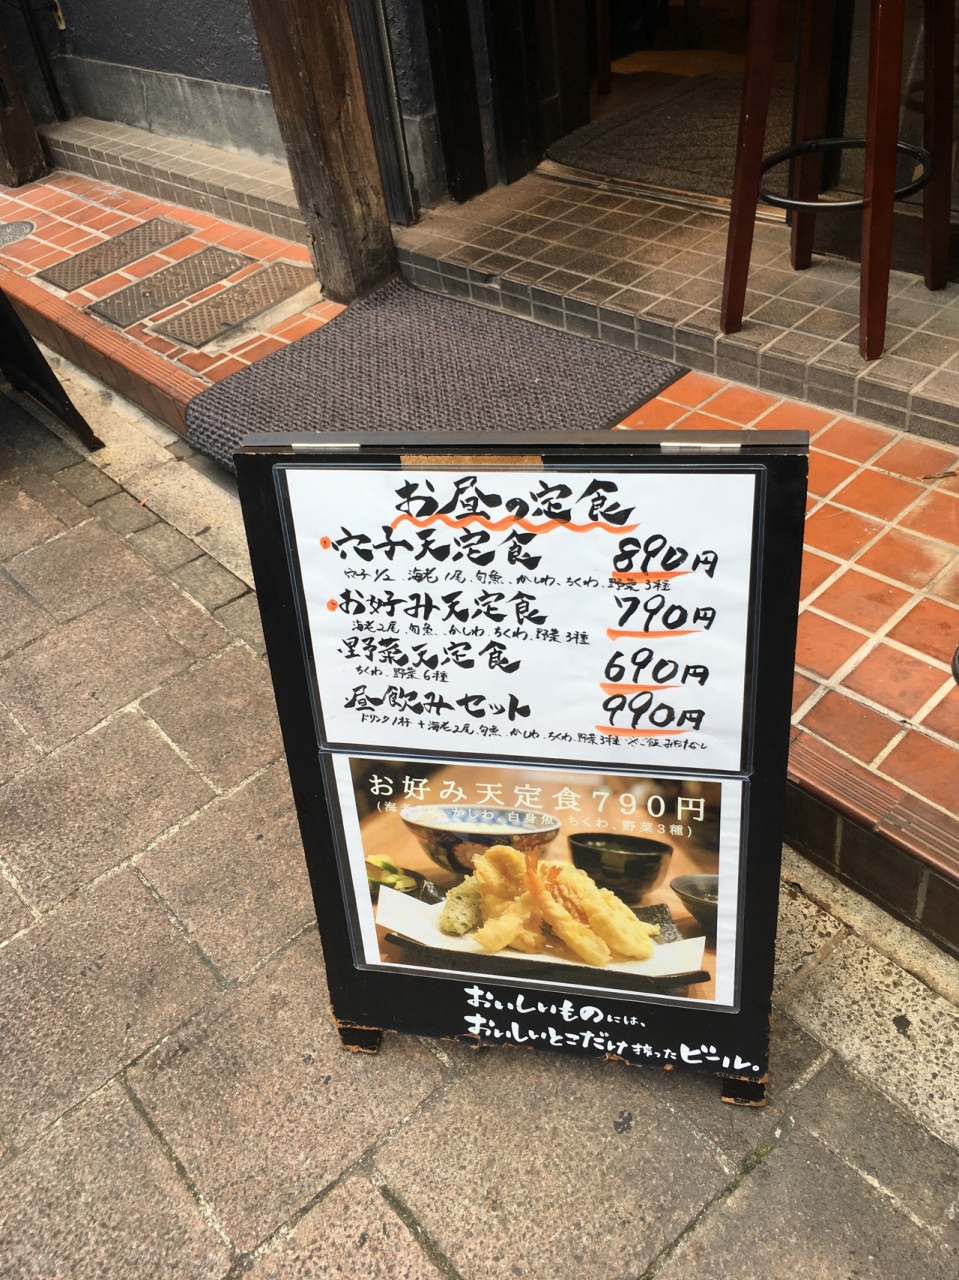 お昼の定食
穴子天定食 890円
穴子1/2、海老1尾、旬魚、かしわ、ちくわ、野菜3種
お好み天定食 790円
海老2尾、旬魚、かしわ、ちくわ、野菜3種
野菜天定食 690円
ちくわ、野菜6種
昼飲みセット 990円
ドリンク1杯+海老2尾、旬魚、かしわ、ちくわ、野菜3種 ※ご飯みそ汁なし
お好み天定食790円
(海老 かしわ、白身魚、ちくわ、野菜3種)
おいしいものには、
おいしいとこだけ搾ったビール。